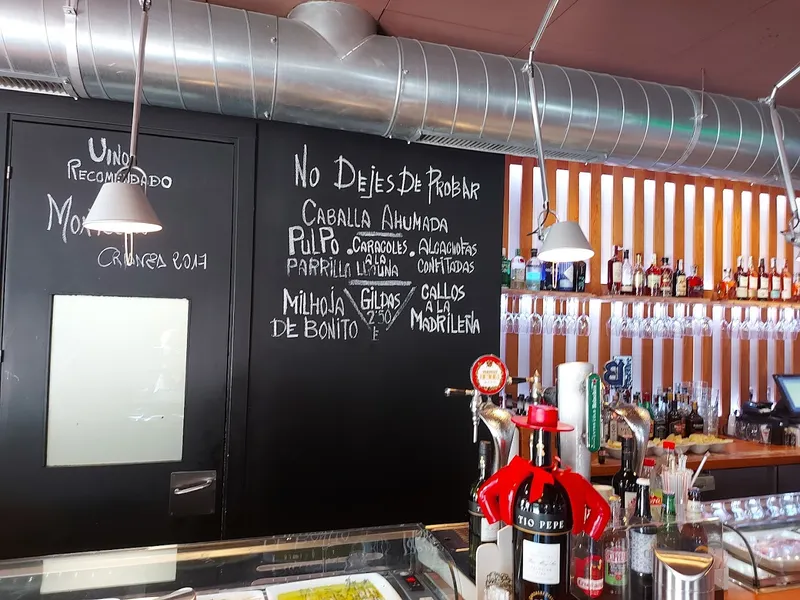 Vino
Recomendado
Crianza 2017
No Dejes De Probar
Caballa Ahumada
Pulpo
Parrilla
.Caracoles
a la
Llauna
.Alcachofas
Confitadas
Milhoja
de Bonito
Gildas
2'50
E
Callos
a la
Madrileña
TIO PEPE